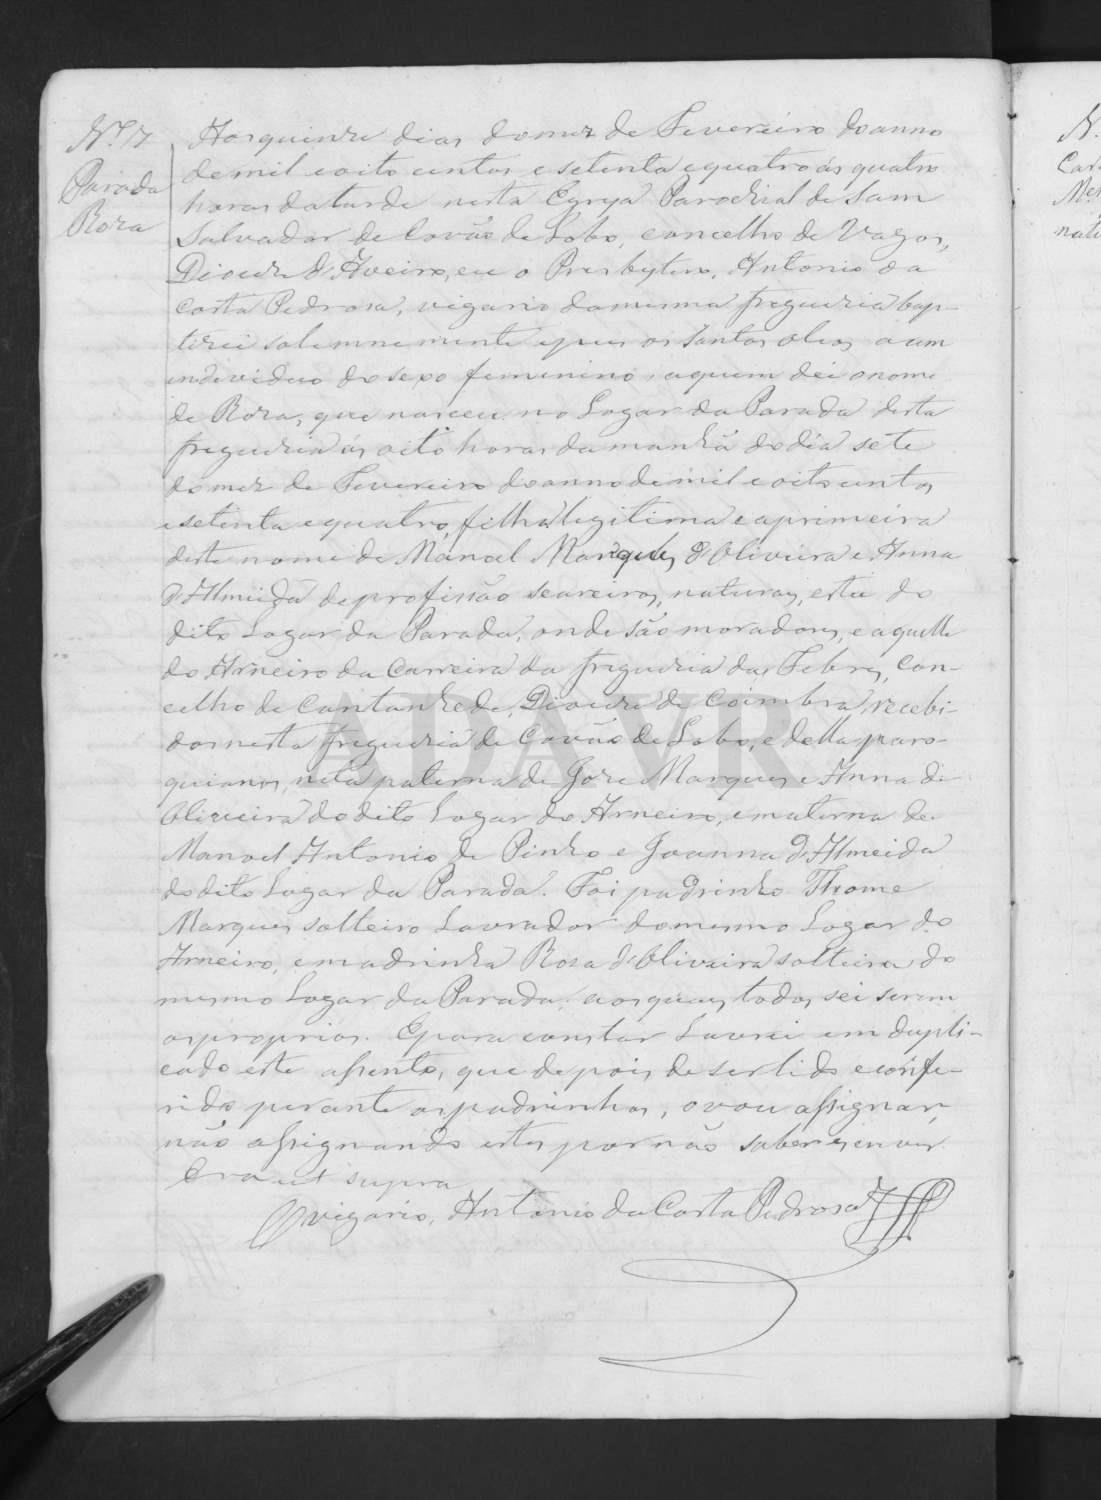 Nº 7
Parada
Roza
Aos quinze dias do mez de Fevereiro do anno
de mil e oito centos e setenta e quatro ás quatro
horas da tarde nesta Egreja Parochial de Sam
Salvador de Covão de Lobo, concelho de Vagos,
Diocese d'Aveiro, eu o Presbytero, Antonio da
Costa Pedrosa, vigario da mesma freguezia bap-
tizei solemnemente e puz os Santos oleos a um
individuo do sexo femenino, a quem dei o nome
de Roza, que nasceu no Logar da Parada desta
freguezia ás oito horas da manhã do dia sete
do mez de Fevereiro do anno de mil e oito centos
e setenta e quatro, filha legitima e a primeira
deste nome de Manoel Marques d'Oliveira e Anna
d'Almeida de profissão seareiros, naturaes, esta do
dito Logar da Parada, onde são moradores, e aquelle
do Arneiro da Carreira da freguezia das Febres, Con-
celho de Cantanhede, Diocese de Coimbra, recebi-
dos nesta freguezia de Covão de Lobo, e della paro-
quianos, neta paterna de Joze Marques e Anna de
Oliveira do dito Logar do Arneiro, e materna de
Manoel Antonio de Pinho e Joanna d'Almeida
do dito Logar da Parada. Foi padrinho Thome
Marques solteiro Lavrador do mesmo Logar do
Arneiro, e madrinha Rosa d'Oliveira solteira do
mesmo Logar da Parada, aos quaes todos sei serem
os proprios. E para constar Lavrei em dupli-
cado este assento, que depois de ser lido e confe-
rido perante os padrinhos, o vou assignar,
não assignando estes por não saberem escrever.
Era ut supra
O vigario, Antonio da Costa Pedrosa
ADAVR
N.
Car
nat